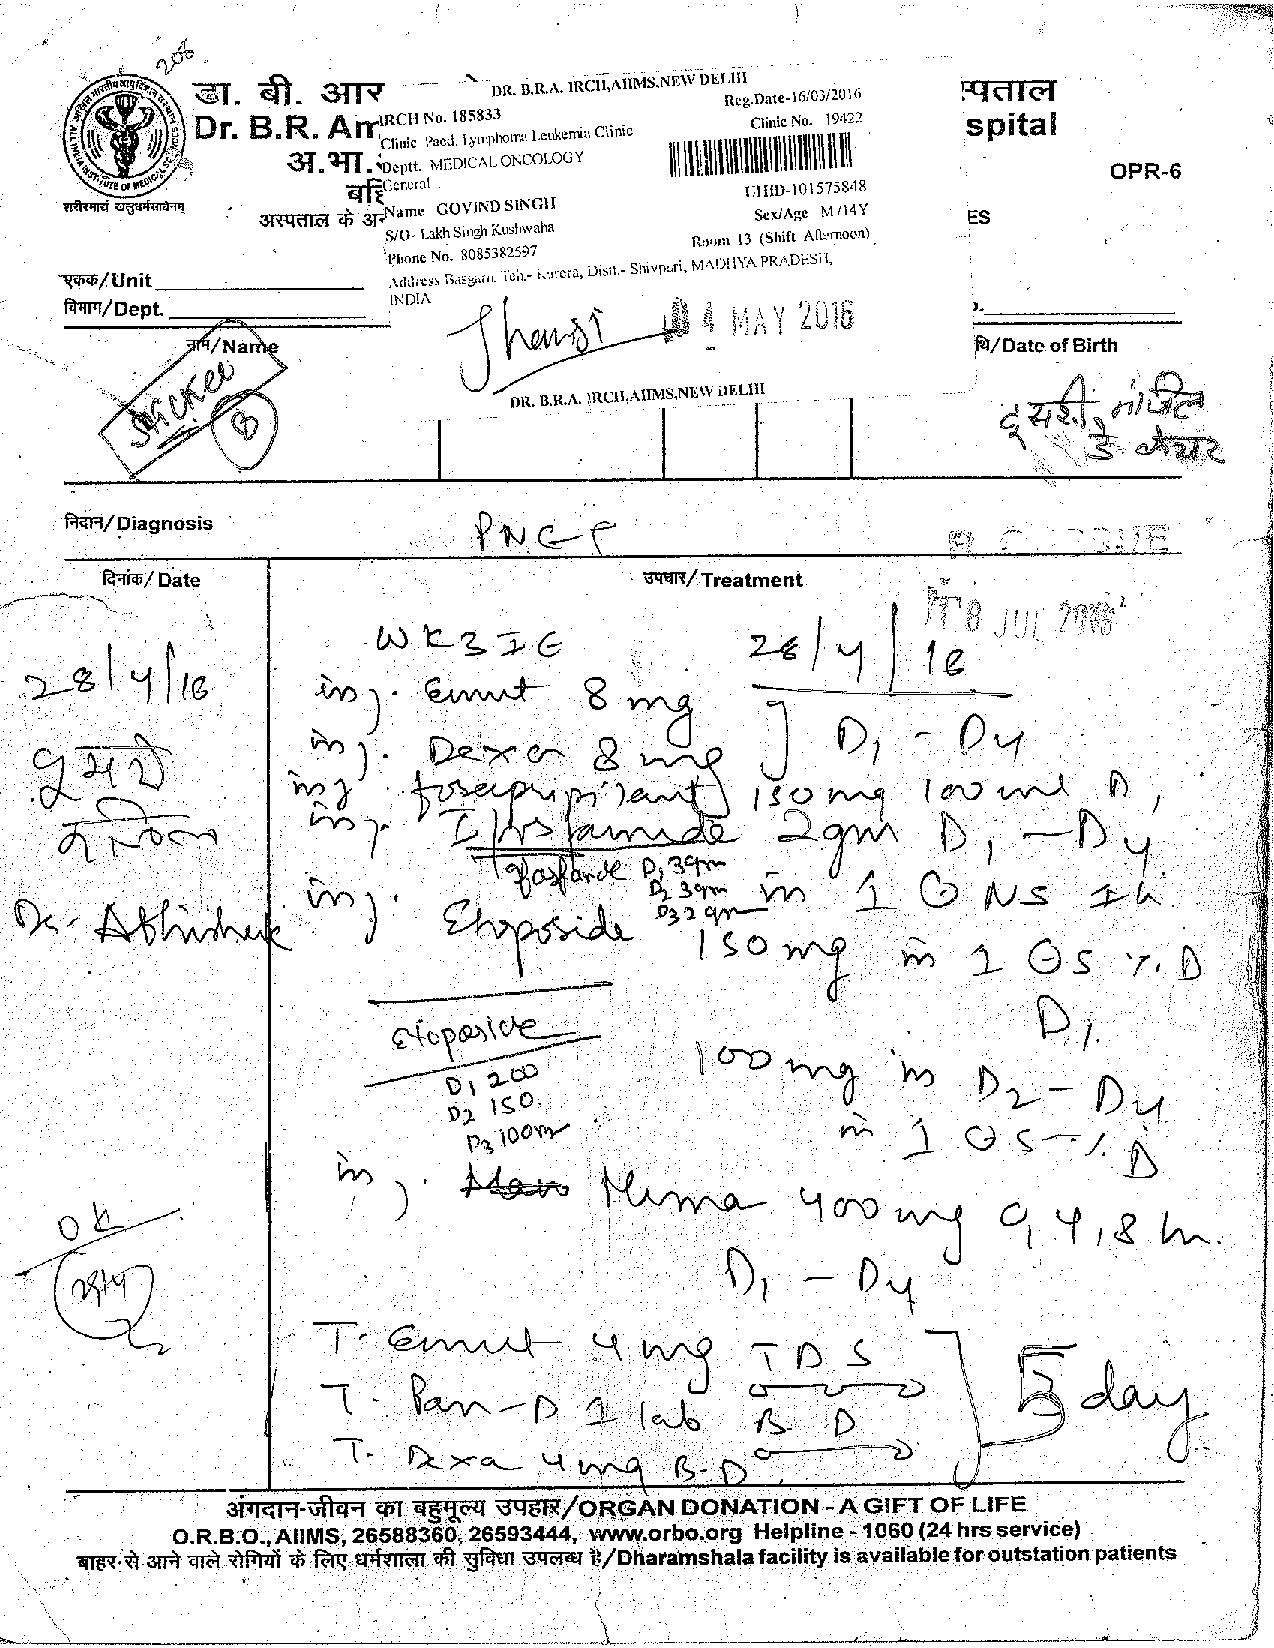 208
डा. बी. आर
Dr. B.R. Am
अ.भा.
बहि
अस्पताल के अन
DR. B.R.A. IRCH,AIIMS,NEW DELHI
IRCH No. 185833
Reg.Date-16/03/2016
Clinic Paed. Lymphoma Leukemia Clinic
Clinic No. 19422
Deptt. MEDICAL ONCOLOGY
General
UHID-101575848
Name GOVIND SINGH
Sex/Age M/14Y
S/O- Lakh Singh Kushwaha
Room 13 (Shift Afternoon)
Phone No. 8085382597
Address Teh.- Karera, Distt.- Shivpuri, MADHYA PRADESH,
INDIA
स्पताल
spital
OPR-6
ES
शरीरमाद्यं खलुधर्मसाधनम्
एकक/Unit
विभाग/Dept.
4 MAY 2016
नाम/Name
थि/Date of Birth
DR. B.R.A. IRCH,AIIMS,NEW DELHI
B
दूसरी मंजिल
निदान/Diagnosis
PNET
दिनांक/Date
उपचार/Treatment
8 JUL
WK3 IE
28/4/16
28/4/16
inj. Emset 8 mg
inj. Dexa 8 mg ] D1 - D4
inj fosaprepitant 150mg 100 ml D1
inj. Ifosfamide 2gm D1 - D4
Ifosfamide D1 3gm
D2 3gm in 1 @ NS
D3 2 gm
Dr. Abhishek
inj. Etoposide 150 mg in 1 @ 5 %. D
D1.
Etoposide
100 mg in D2 - D4
D1 200
D2 150.
in 1 @ 5 -%. D
D3 100m
inj. Mesna 400 mg 0, 4, 8 hr.
D1 - D4
OK
28/4
T. Emset 4 mg TDS
T. Pan-D 1 tab BD
5 day
T. Dexa 4 mg B.D
अंगदान-जीवन का बहुमूल्य उपहार/ORGAN DONATION - A GIFT OF LIFE
O.R.B.O., AIIMS, 26588360, 26593444, www.orbo.org Helpline - 1060 (24 hrs service)
बाहर-से आने वाले रोगियों के लिए धर्मशाला की सुविधा उपलब्ध है/Dharamshala facility is available for outstation patients